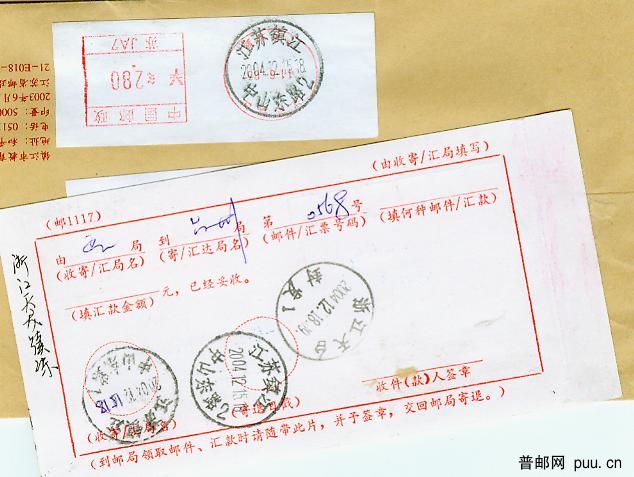 江苏镇江
2004.12.15.18
中山东路2
苏 JA7
¥ 2.80
中国邮政
21-E018-
江苏省邮政
2003年6月
印量：5000
电话：051
地址：和平
镇江市教育
(邮1117)
(由收寄/汇局填写)
由 局 到 局 第 0568 号
(收寄/汇局名) (寄/汇达局名) (邮件/汇票号码) (填何种邮件/汇款)
元，已经妥收。
(填汇款金额)
浙江天台
2004.12.18.19
封发1
江苏镇江
2004.12.15
中山东路2
中山东路
江苏镇江
收件(款)人签章
(收寄/汇局名) (寄退日戳)
(到邮局领取邮件、汇款时请随带此片，并予签章，交回邮局寄退。)
浙江天台
普邮网 puu.cn